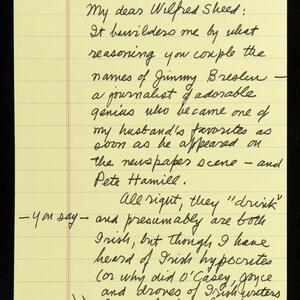 My dear Wilfred Sheed:
It bewilders me by what
reasoning you couple the
names of Jimmy Breslin —
a journalist of adorable
genius who became one of
my husband's favorites as
soon as he appeared on
the newspaper scene — and
Pete Hamill.
All right, they "drink"
— you say — and presumably are both
Irish, but though I have
heard of Irish hypocrites
(or why did O'Casey, Joyce
and drones of Irish writers